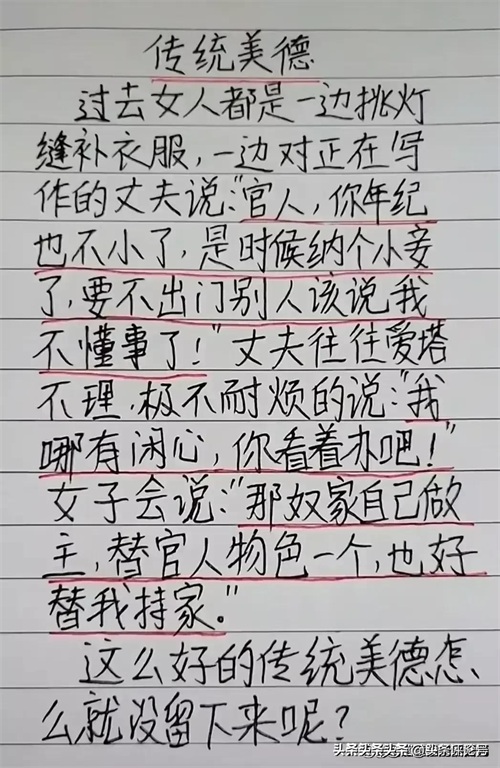 传统美德
过去女人都是一边挑灯
缝补衣服，一边对正在写
作的丈夫说：“官人，你年纪
也不小了，是时候纳个小妾
了，要不出门别人该说我
不懂事了！”丈夫往往爱搭
不理，极不耐烦的说：“我
哪有闲心，你看着办吧！”
女子会说：“那奴家自己做
主，替官人物色一个，也好
替我持家。”
这么好的传统美德怎
么就没留下来呢？
头条头条头条